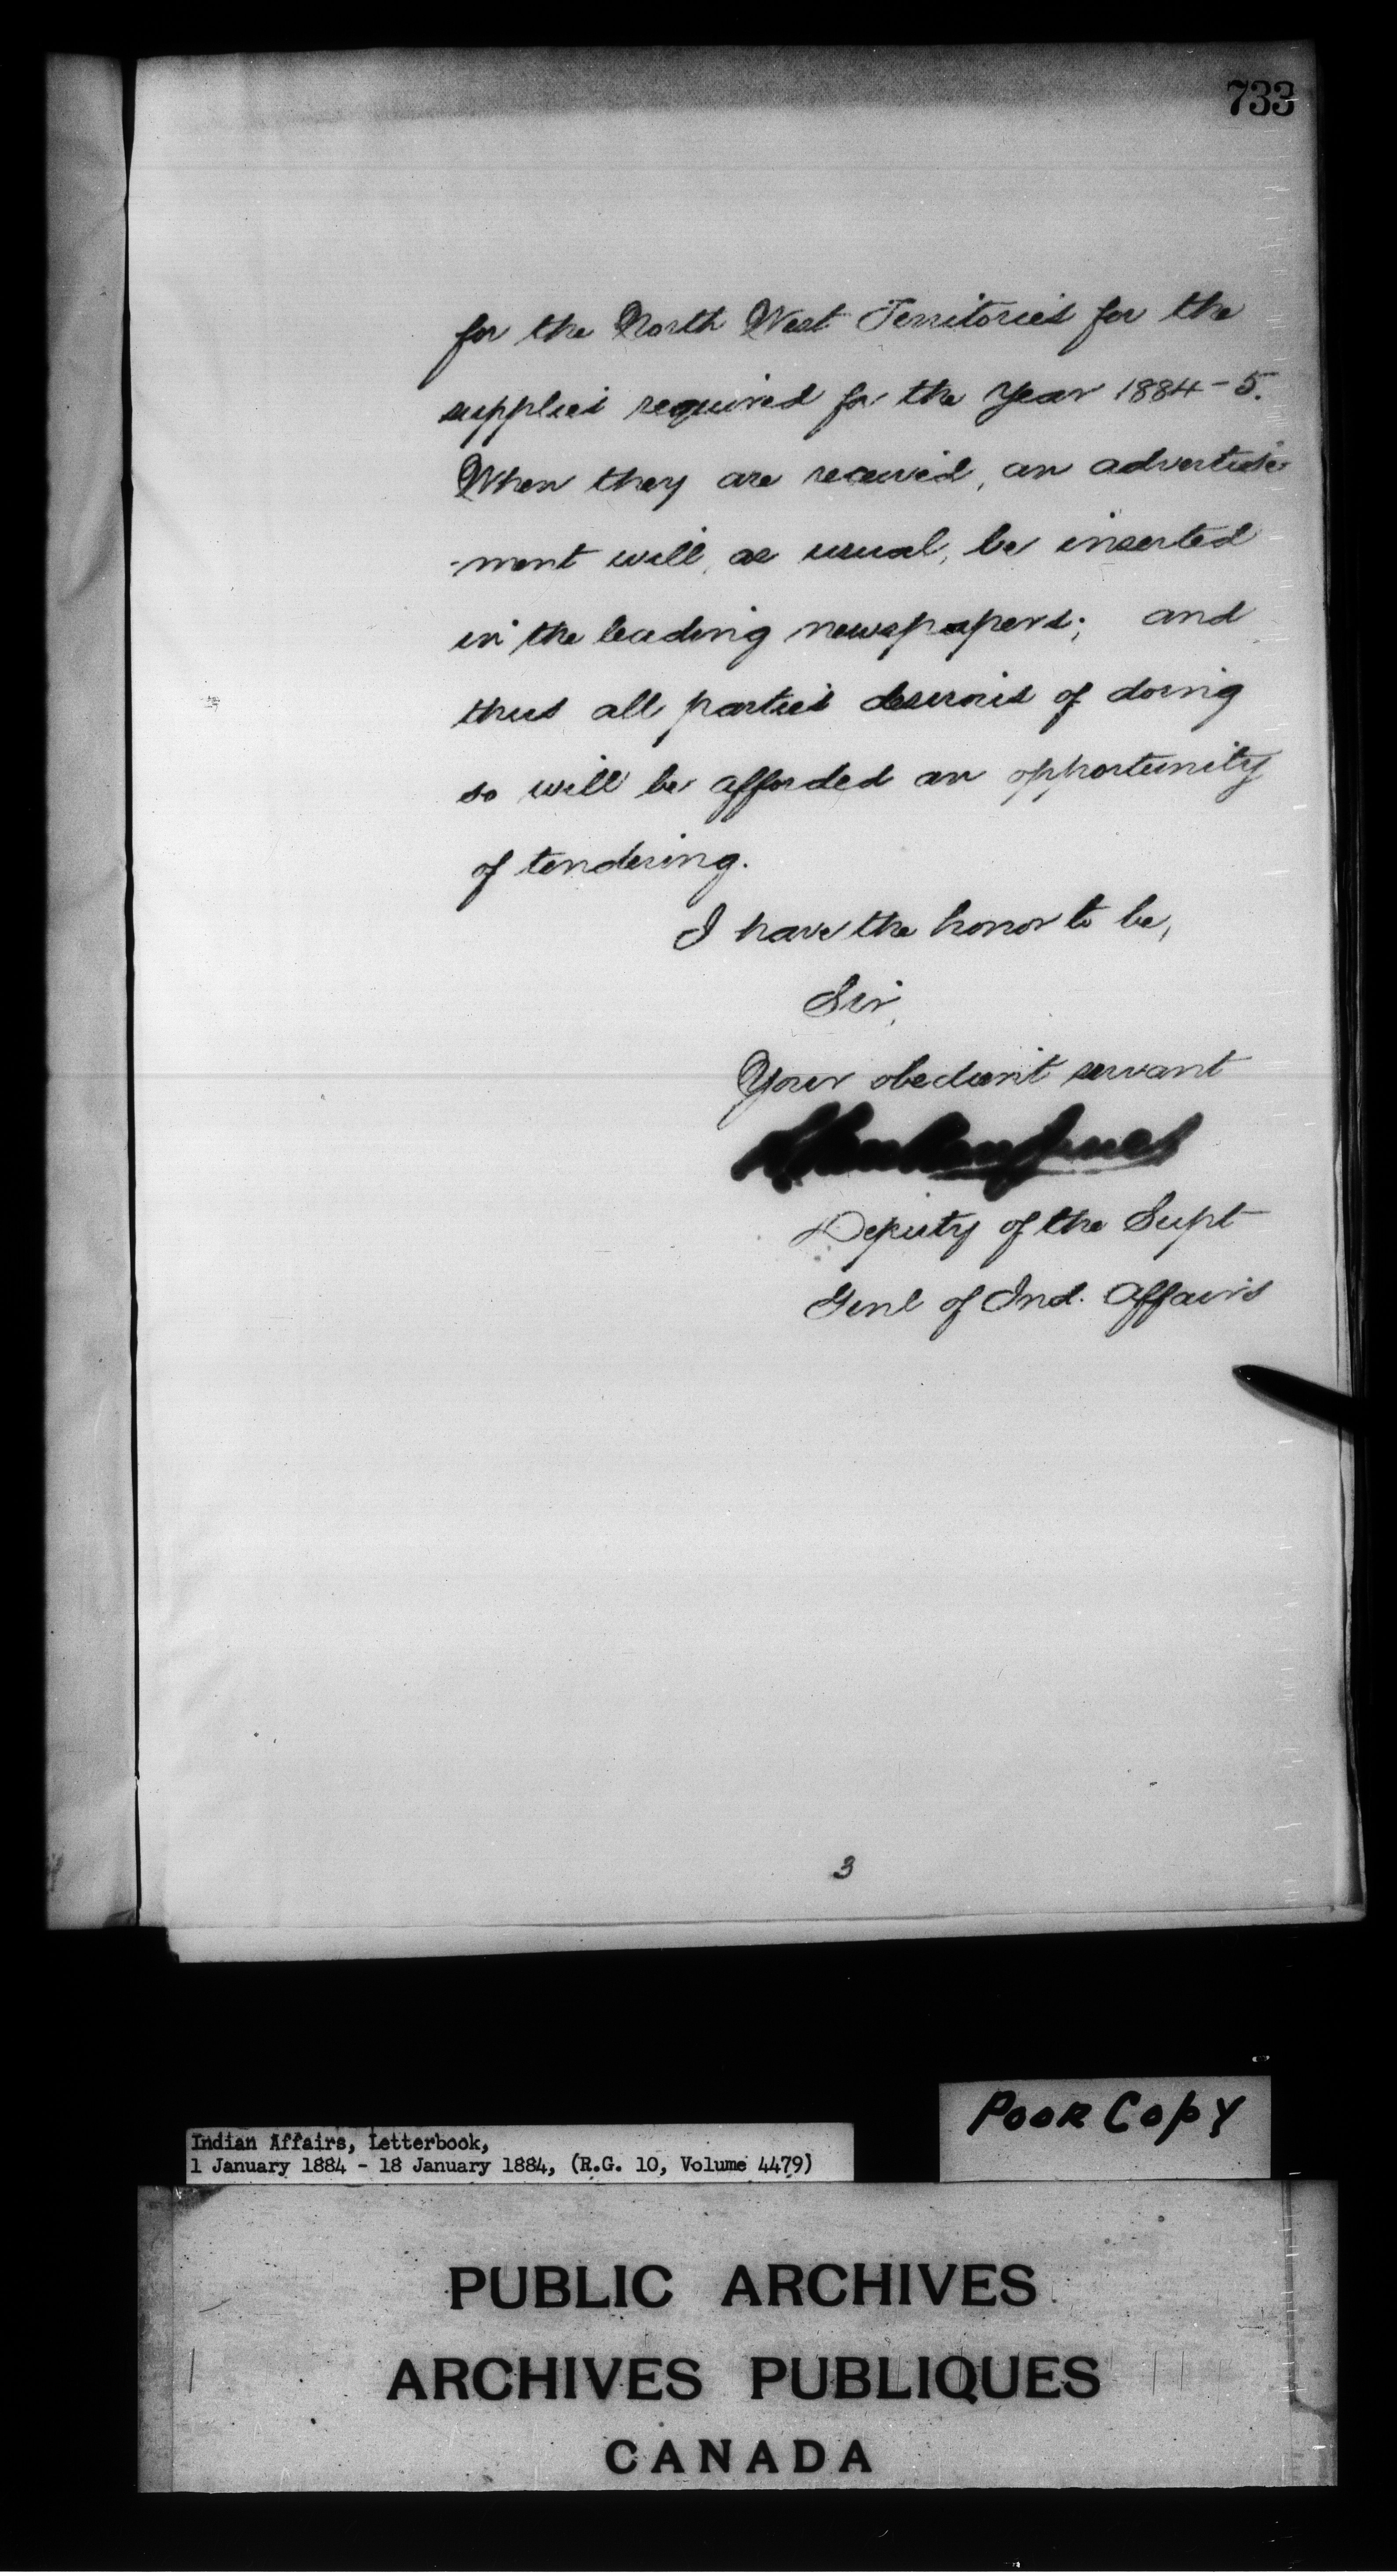 733
for the North West Territories for the
supplies required for the Year 1884-5.
When they are received, an advertise-
-ment will, as usual, be inserted
in the leading newspapers; and
thus all parties desirous of doing
so will be afforded an opportunity
of tendering.
I have the honor to be,
Sir,
Your obedient servant
Deputy of the Supt
Genl of Ind. Affairs
3
Poor Copy
Indian Affairs, Letterbook,
1 January 1884 - 18 January 1884, (R.G. 10, Volume 4479)
PUBLIC ARCHIVES
ARCHIVES PUBLIQUES
CANADA